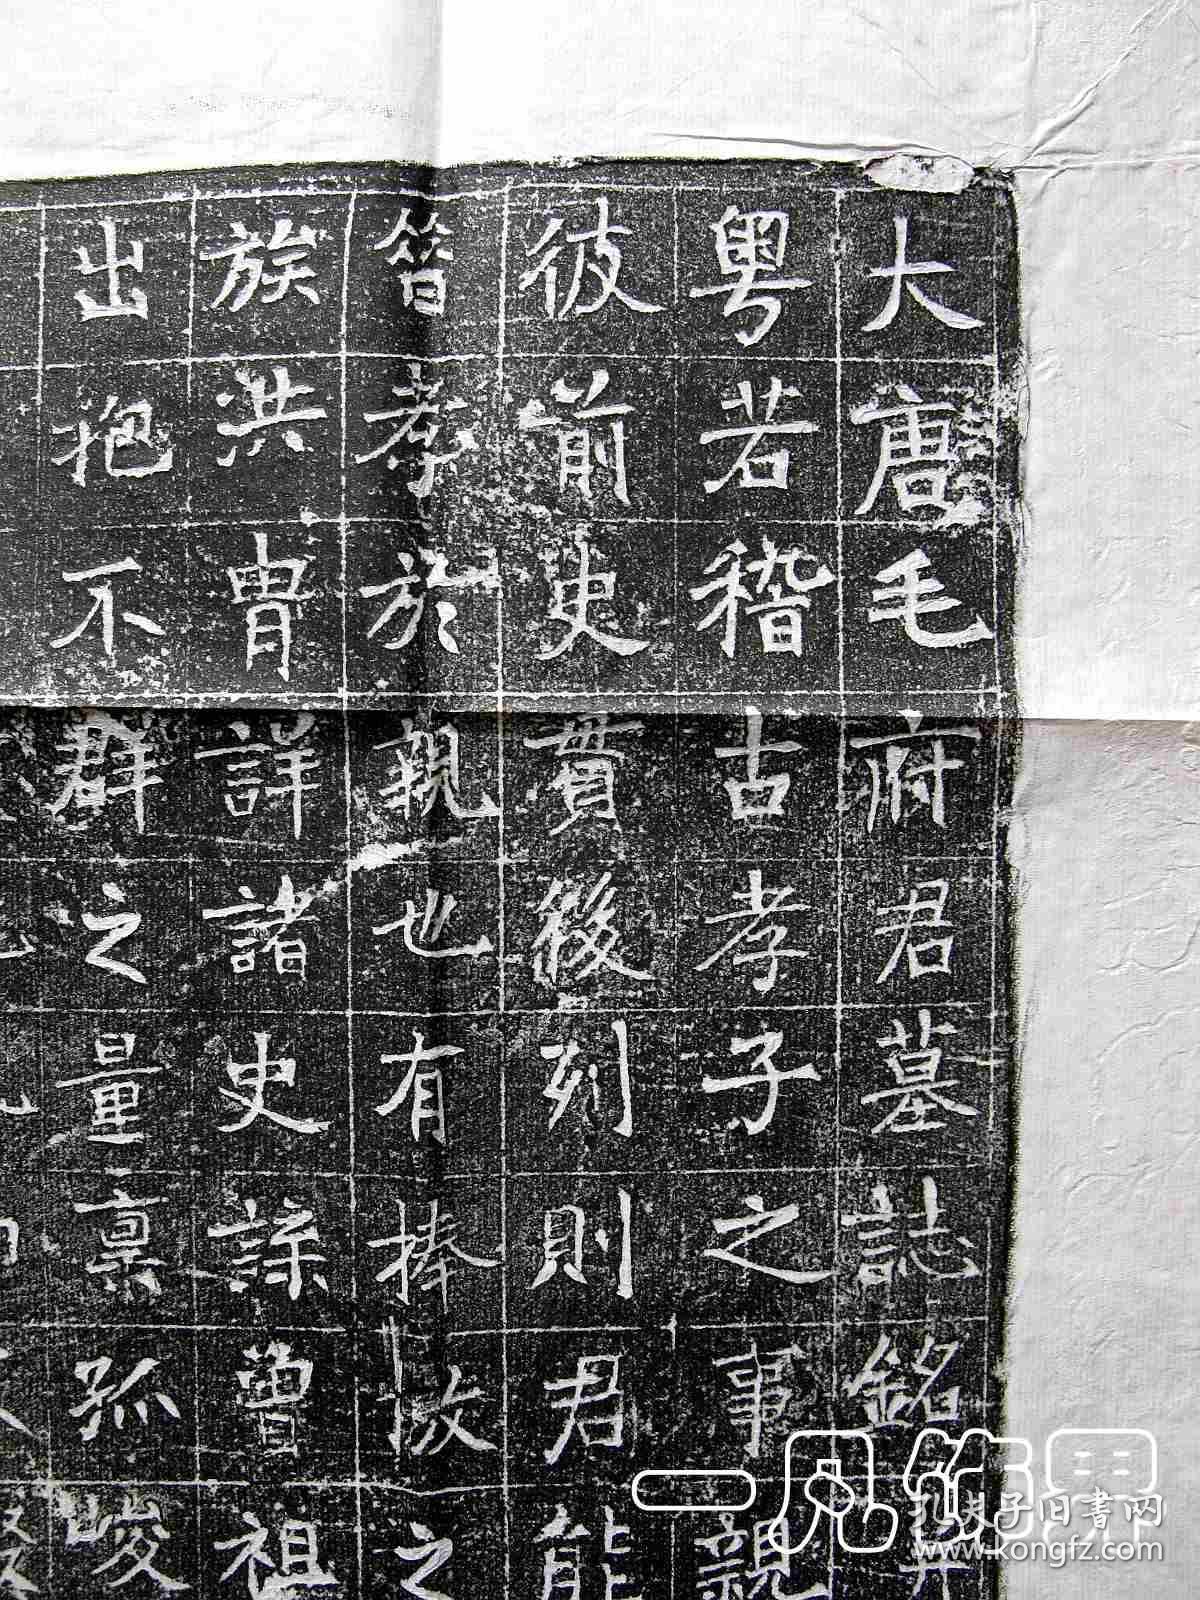 大唐毛府君墓誌銘并
粤若稽古孝子之事親
彼前史貫後列則君能
昝孝於親也有捧檄之
族洪胄詳諸史諜曽祖
出抱不群之量禀孤峻
一见饰界
孔夫子旧書网
www.kongfz.com